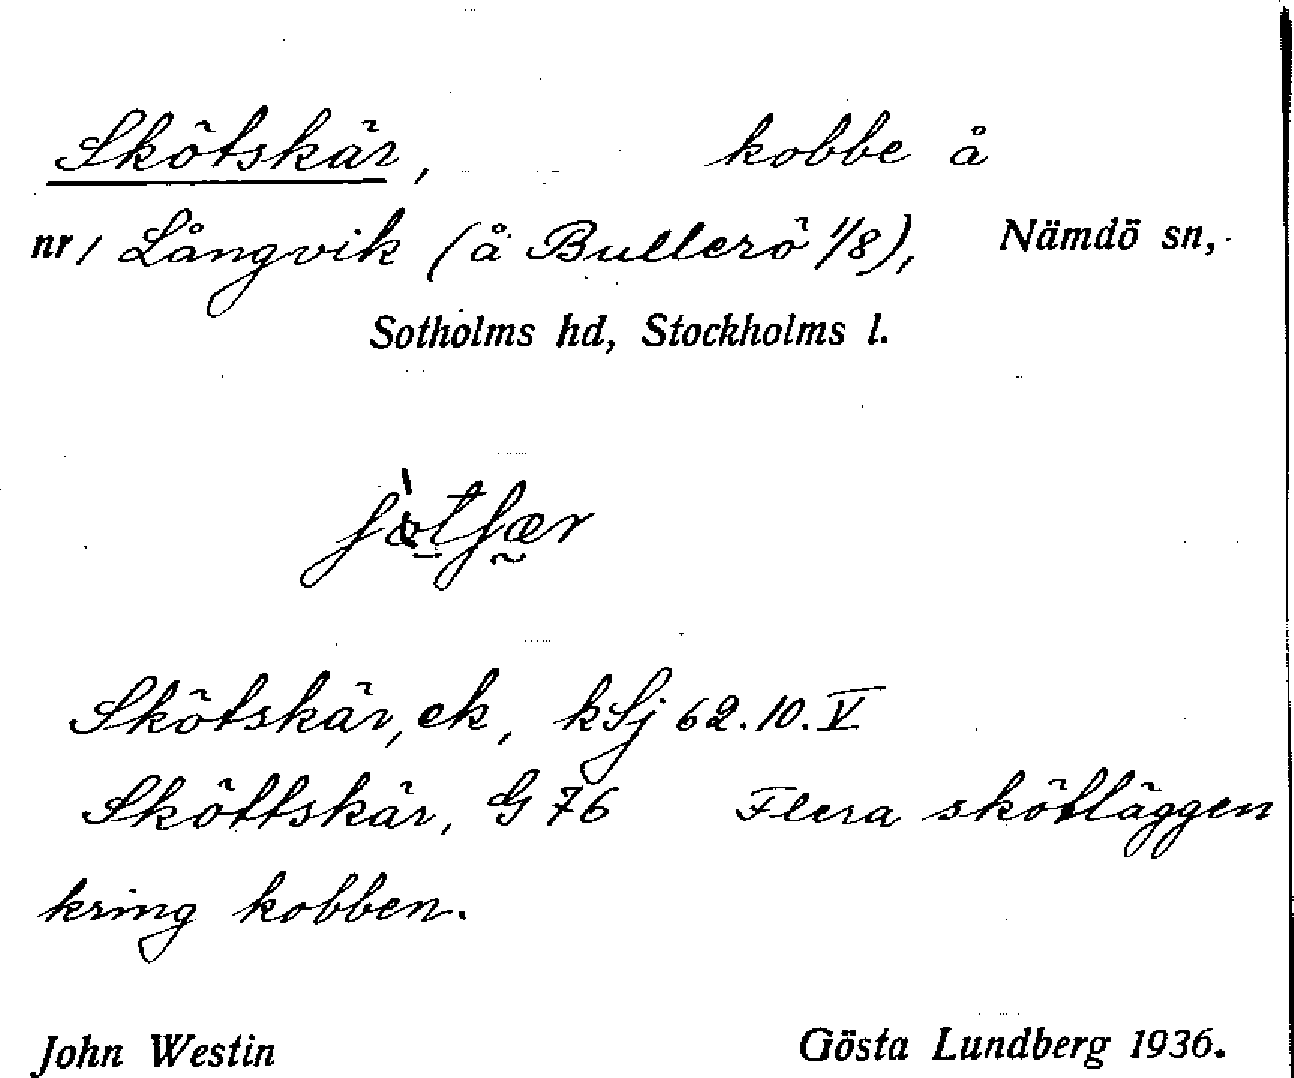 Skötskär, kobbe å
nr 1 Långvik (å Bullerö 1/8), Nämdö sn,
Sotholms hd, Stockholms l.
Skötskär, ek, kSj 62.10.V
Sköttskär, G 76 Flera skötläggen
kring kobben.
John Westin Gösta Lundberg 1936.